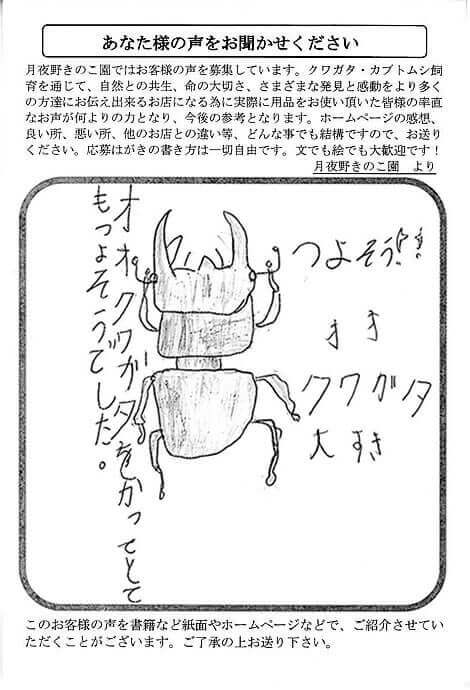 あなた様の声をお聞かせください
月夜野きのこ園ではお客様の声を募集しています。クワガタ・カブトムシ飼
育を通じて、自然との共生、命の大切さ、さまざまな発見と感動をより多く
の方達にお伝え出来るお店になる為に実際に用品をお使い頂いた皆様の率直
なお声が何よりの力となり、今後の参考となります。ホームページの感想、
良い所、悪い所、他のお店との違い等、どんな事でも結構ですので、お送り
ください。応募はがきの書き方は一切自由です。文でも絵でも大歓迎です！
月夜野きのこ園　より
つよそう!!
オオ
クワガタ
大すき
オオクワガタをかってとて
もつよそうでした。
このお客様の声を書籍など紙面やホームページなどで、ご紹介させてい
ただくことがございます。ご了承の上お送り下さい。